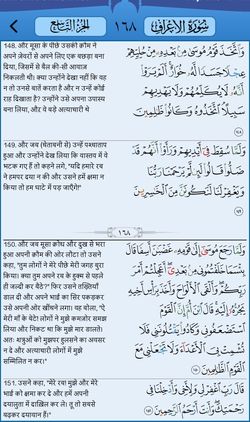 سُورَةُ الأَعْرَافِ ١٦٨ الجُزْءُ التَّاسِعُ
148. और मूसा के पीछे उसकी क़ौम ने
अपने ज़ेवरों से अपने लिए एक बछड़ा बना
दिया, जिसमें से बैल की-सी आवाज़
निकलती थी। क्या उन्होंने देखा नहीं कि वह
न तो उनसे बातें करता है और न उन्हें कोई
राह दिखाता है? उन्होंने उसे अपना उपास्य
बना लिया, और वे बड़े अत्याचारी थे
وَٱتَّخَذَ قَوْمُ مُوسَىٰ مِنۢ بَعْدِهِۦ مِنْ حُلِيِّهِمْ
عِجْلًا جَسَدًا لَّهُۥ خُوَارٌ ۚ أَلَمْ يَرَوْا۟
أَنَّهُۥ لَا يُكَلِّمُهُمْ وَلَا يَهْدِيهِمْ
سَبِيلًا ۘ ٱتَّخَذُوهُ وَكَانُوا۟ ظَٰلِمِينَ
١٤٨
149. और जब (चेतावनी से) उन्हें पश्चाताप
हुआ और उन्होंने देख लिया कि वास्तव में वे
भटक गए हैं तो कहने लगे, "यदि हमारे रब
ने हमपर दया न की और उसने हमें क्षमा न
किया तो हम घाटे में पड़ जाएँगे!"
وَلَمَّا سُقِطَ فِىٓ أَيْدِيهِمْ وَرَأَوْا۟ أَنَّهُمْ قَدْ
ضَلُّوا۟ قَالُوا۟ لَئِن لَّمْ يَرْحَمْنَا رَبُّنَا
وَيَغْفِرْ لَنَا لَنَكُونَنَّ مِنَ ٱلْخَٰسِرِينَ
١٤٩
١٦٨
150. और जब मूसा क्रोध और दुख से भरा
हुआ अपनी क़ौम की ओर लौटा तो उसने
कहा, "तुम लोगों ने मेरे पीछे मेरी जगह बुरा
किया। क्या तुम अपने रब के हुक्म से पहले
ही जल्दी कर बैठे?" फिर उसने तख़्तियाँ
डाल दी और अपने भाई का सिर पकड़कर
उसे अपनी ओर खींचने लगा। वह बोला, "ऐ
मेरी माँ के बेटे! लोगों ने मुझे कमज़ोर समझा
लिया और निकट था कि मुझे मार डालते।
अतः शत्रुओं को मुझपर हुलसने का अवसर
न दे और अत्याचारी लोगों में मुझे
सम्मिलित न कर।"
وَلَمَّا رَجَعَ مُوسَىٰٓ إِلَىٰ قَوْمِهِۦ غَضْبَٰنَ أَسِفًا قَالَ
بِئْسَمَا خَلَفْتُمُونِى مِنۢ بَعْدِىٓ ۖ أَعَجِلْتُمْ أَمْرَ
رَبِّكُمْ ۖ وَأَلْقَى ٱلْأَلْوَاحَ وَأَخَذَ بِرَأْسِ أَخِيهِ
يَجُرُّهُۥٓ إِلَيْهِ ۚ قَالَ ٱبْنَ أُمَّ إِنَّ ٱلْقَوْمَ
ٱسْتَضْعَفُونِى وَكَادُوا۟ يَقْتُلُونَنِى فَلَا
تُشْمِتْ بِىَ ٱلْأَعْدَآءَ وَلَا تَجْعَلْنِى مَعَ
ٱلْقَوْمِ ٱلظَّٰلِمِينَ ١٥٠
151. उसने कहा, "मेरे रब! मुझे और मेरे
भाई को क्षमा कर दे और हमें अपनी
दयालुता में दाख़िल कर ले। तू तो सबसे
बढ़कर दयावान हैं।"
قَالَ رَبِّ ٱغْفِرْ لِى وَلِأَخِى وَأَدْخِلْنَا فِى
رَحْمَتِكَ ۖ وَأَنتَ أَرْحَمُ ٱلرَّٰحِمِينَ ١٥١